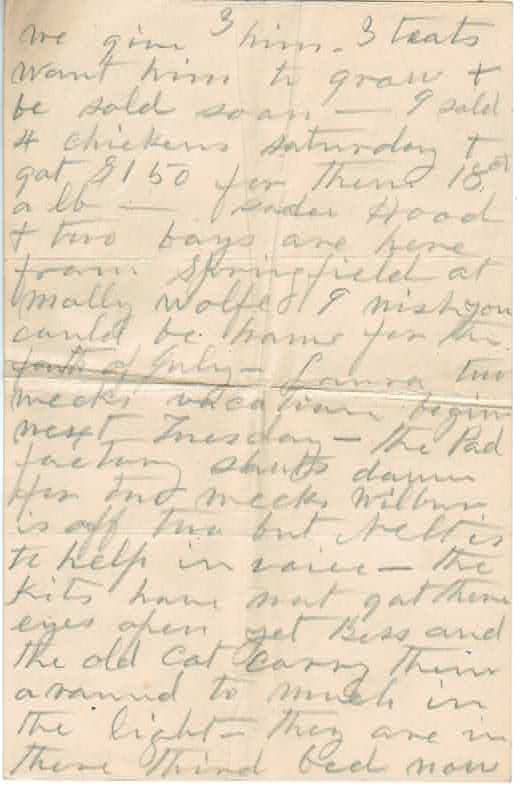 we give 3 him. 3 teats
want him to grow +
be sold soon — I sold
4 chickens saturday +
got $1 50 for them 18ct
a lb — Sadie Hood
+ two boys are here
from Springfield at
Molly Wolfes I wish you
could be home for the
fourth of July — two
weeks vacation begin
next Tuesday — the Pad
factory shuts down
for two weeks Wilbur
is off two but Nelt is
to help in voice — the
kits have not got there
eyes open yet Bess and
the old Cat Carry them
around to much in
the light — they are in
there third bed now